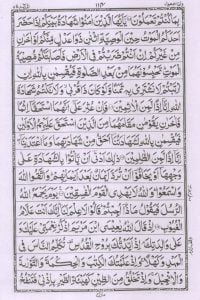 ۱۱۴
بِمَا كُنْتُمْ تَعْمَلُوْنَ يٰۤاَيُّهَا الَّذِيْنَ اٰمَنُوْا شَهَادَةُ بَيْنِكُمْ اِذَا حَضَرَ
اَحَدَكُمُ الْمَوْتُ حِيْنَ الْوَصِيَّةِ اثْنٰنِ ذَوَا عَدْلٍ مِّنْكُمْ اَوْ اٰخَرٰنِ
مِنْ غَيْرِكُمْ اِنْ اَنْتُمْ ضَرَبْتُمْ فِى الْاَرْضِ فَاَصَابَتْكُمْ مُّصِيْبَةُ
الْمَوْتِ تَحْبِسُوْنَهُمَا مِنْۢ بَعْدِ الصَّلٰوةِ فَيُقْسِمٰنِ بِاللّٰهِ اِنِ
ارْتَبْتُمْ لَا نَشْتَرِىْ بِهٖ ثَمَنًا وَّلَوْ كَانَ ذَا قُرْبٰى وَلَا نَكْتُمُ شَهَادَةَ
اللّٰهِ اِنَّاۤ اِذًا لَّمِنَ الْاٰثِمِيْنَ فَاِنْ عُثِرَ عَلٰۤى اَنَّهُمَا اسْتَحَقَّاۤ اِثْمًا
فَاٰخَرٰنِ يَقُوْمٰنِ مَقَامَهُمَا مِنَ الَّذِيْنَ اسْتَحَقَّ عَلَيْهِمُ الْاَوْلَيٰنِ
فَيُقْسِمٰنِ بِاللّٰهِ لَشَهَادَتُنَاۤ اَحَقُّ مِنْ شَهَادَتِهِمَا وَمَا اعْتَدَيْنَاۤ
اِنَّاۤ اِذًا لَّمِنَ الظّٰلِمِيْنَ ذٰلِكَ اَدْنٰۤى اَنْ يَّاْتُوْا بِالشَّهَادَةِ عَلٰى
وَجْهِهَاۤ اَوْ يَخَافُوْۤا اَنْ تُرَدَّ اَيْمَانٌۢ بَعْدَ اَيْمَانِهِمْ وَاتَّقُوا اللّٰهَ
وَاسْمَعُوْا وَاللّٰهُ لَا يَهْدِى الْقَوْمَ الْفٰسِقِيْنَ يَوْمَ يَجْمَعُ اللّٰهُ
الرُّسُلَ فَيَقُوْلُ مَاذَاۤ اُجِبْتُمْ قَالُوْا لَا عِلْمَ لَنَا اِنَّكَ اَنْتَ عَلَّامُ
الْغُيُوْبِ اِذْ قَالَ اللّٰهُ يٰعِيْسَى ابْنَ مَرْيَمَ اذْكُرْ نِعْمَتِىْ عَلَيْكَ
وَعَلٰى وَالِدَتِكَ اِذْ اَيَّدْتُّكَ بِرُوْحِ الْقُدُسِ تُكَلِّمُ النَّاسَ فِى
الْمَهْدِ وَكَهْلًا وَاِذْ عَلَّمْتُكَ الْكِتٰبَ وَالْحِكْمَةَ وَالتَّوْرٰىةَ
وَالْاِنْجِيْلَ وَاِذْ تَخْلُقُ مِنَ الطِّيْنِ كَهَيْئَةِ الطَّيْرِ بِاِذْنِىْ فَتَنْفُخُ